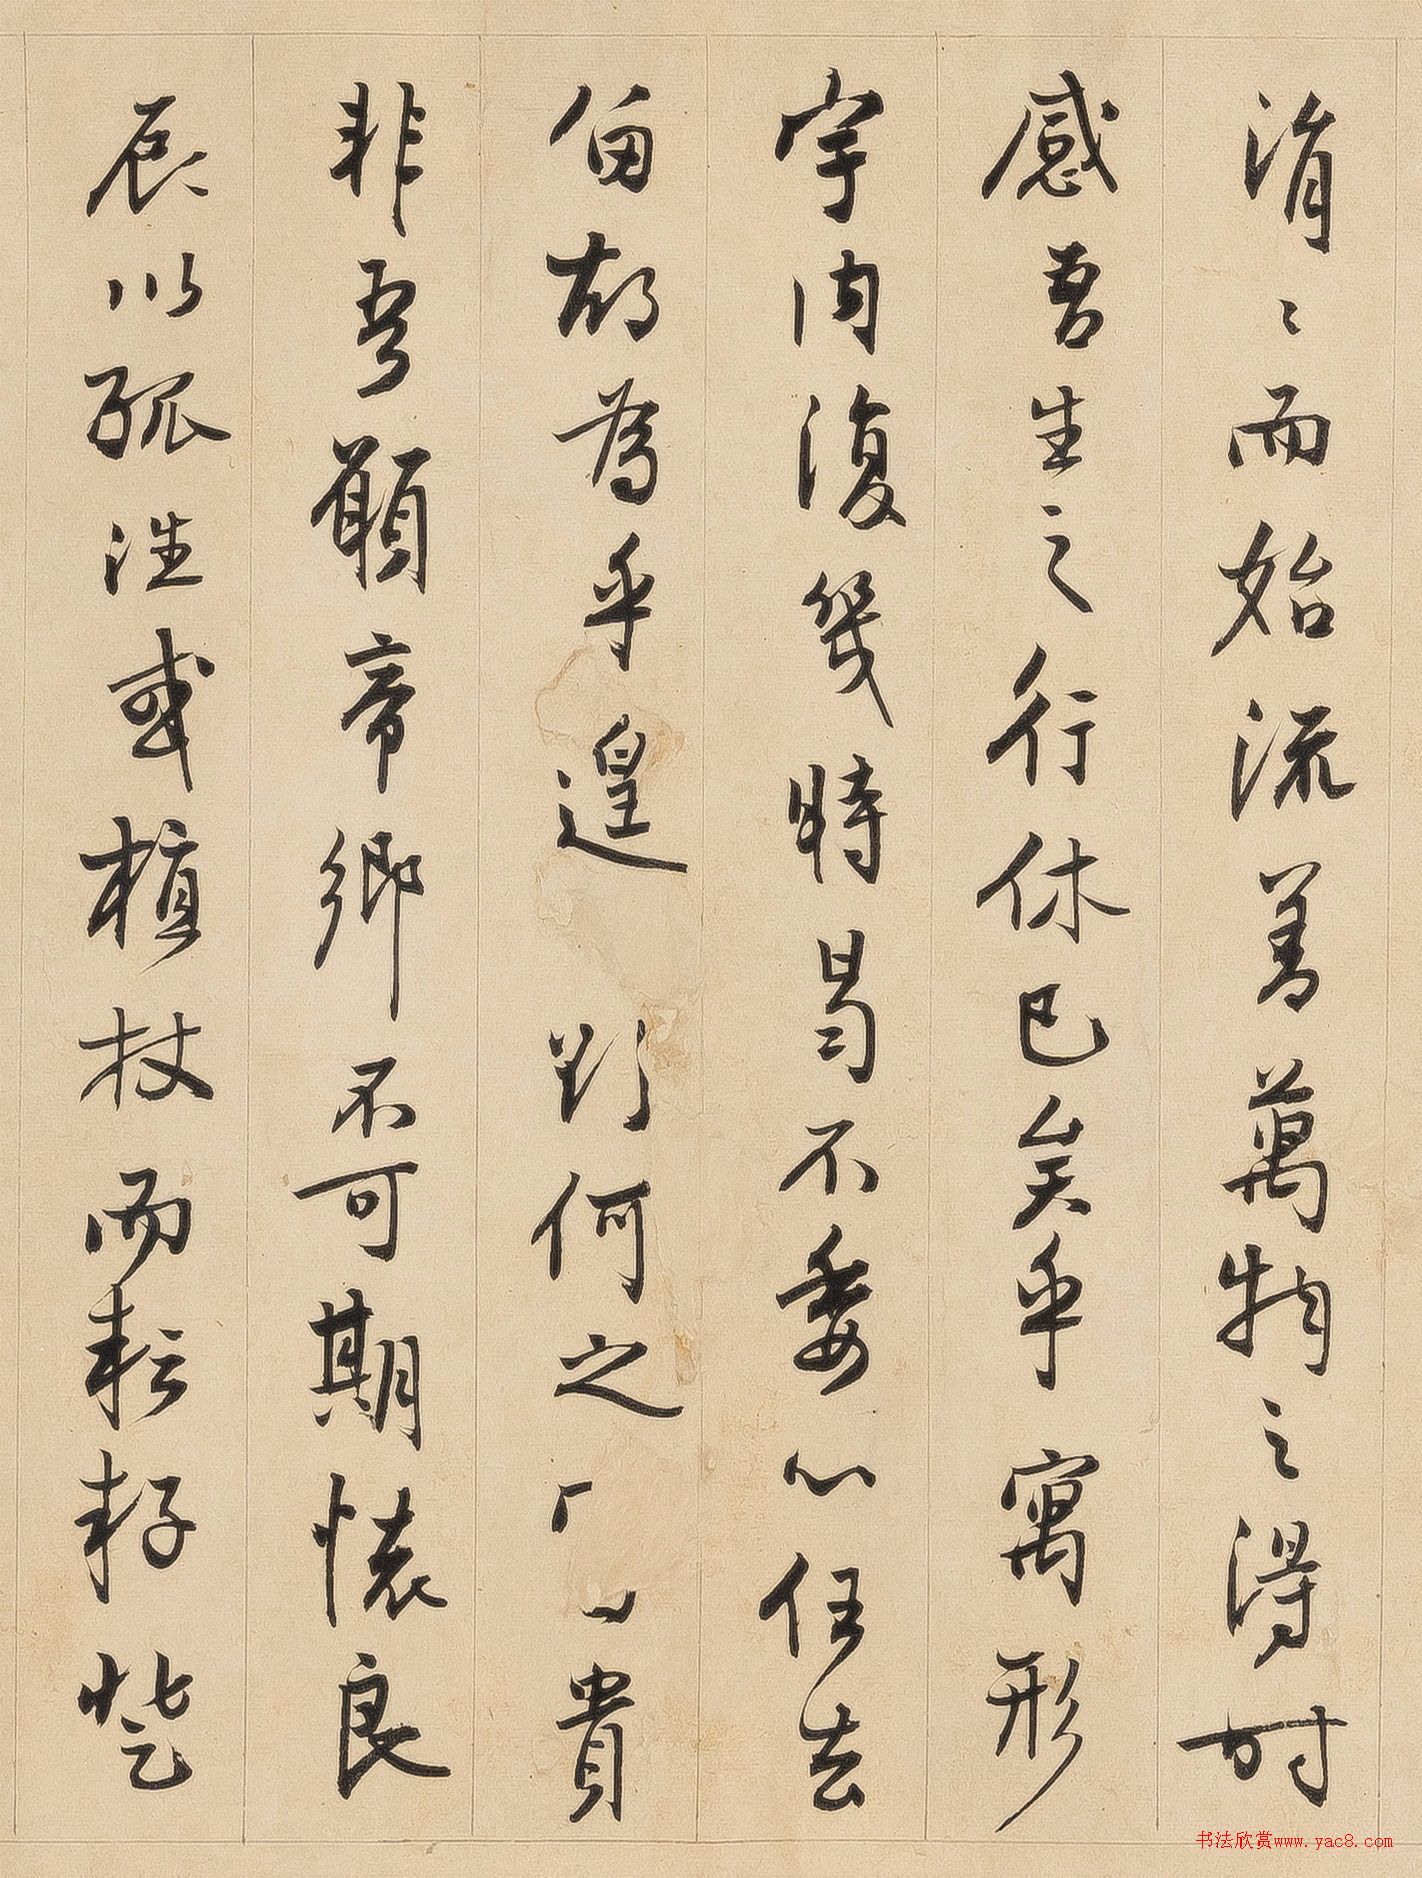 涓〻而始流善萬物之得時
感吾生之行休已矣乎寓形
宇內復幾時曷不委心任去
留胡為乎遑 欲何之 貴
非吾願帝鄉不可期懷良
辰以孤往或植杖而耘耔登
书法欣赏www.yac8.com